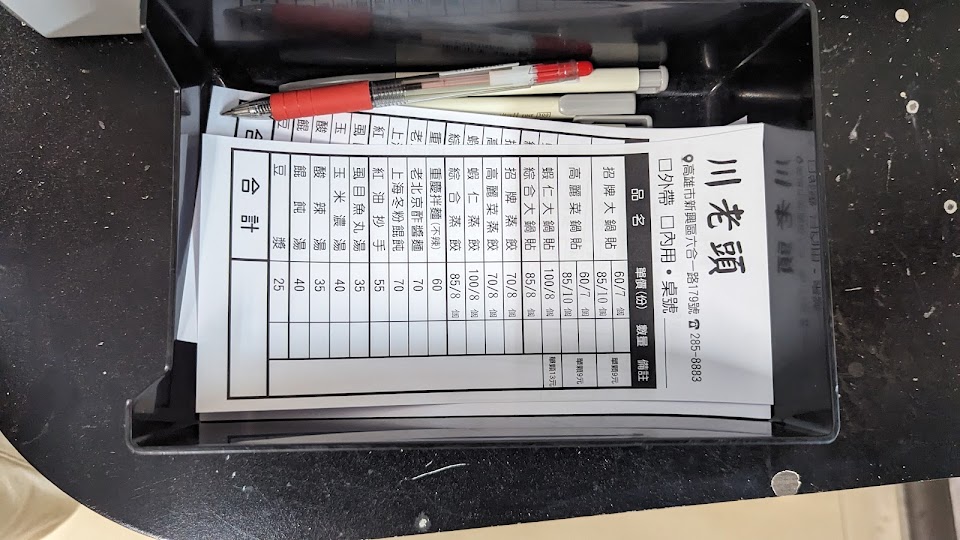 川老頭
高雄市新興區六合一路179號 ☎285-8883
□外帶 □內用・桌號
品名 單價(份) 數量 備註
招牌大鍋貼 60/7個 單顆9元
85/10個
高麗菜鍋貼 60/7個 單顆9元
85/10個
蝦仁大鍋貼 100/8個 單顆13元
綜合大鍋貼 85/8個
招牌蒸餃 70/8個
高麗菜蒸餃 70/8個
蝦仁蒸餃 100/8個
綜合蒸餃 85/8個
重慶拌麵(不辣) 60
老北京酢醬麵 70
上海冬粉餛飩 70
紅油抄手 55
風目魚丸湯 35
玉米濃湯 40
酸辣湯 35
餛飩湯 40
豆漿 25
合計